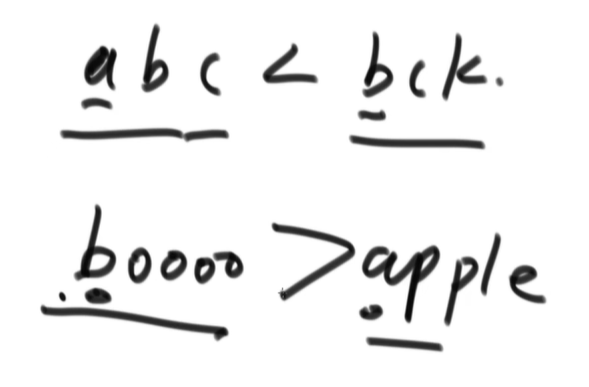 abc < bck.
boooo > apple